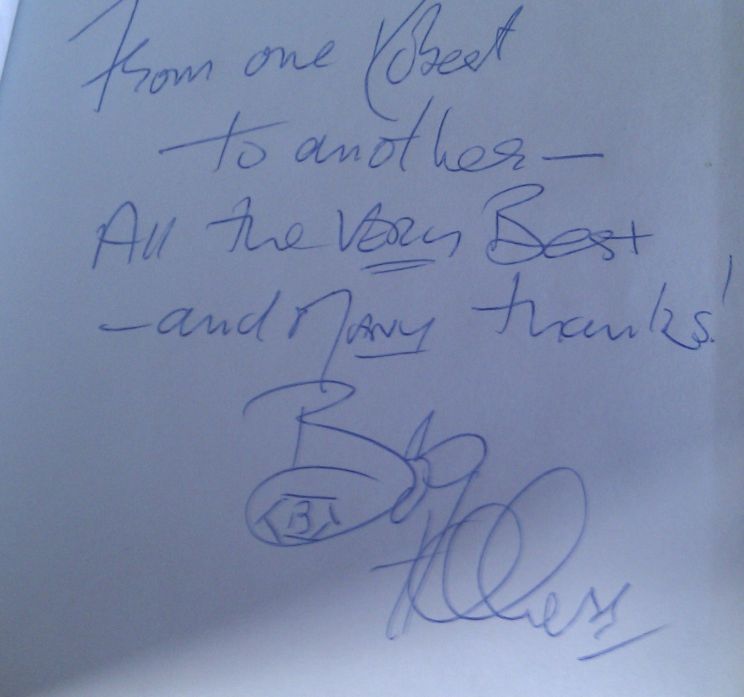 From one Robert
to another —
All the VERY Best
— and MANY thanks!
Bob
B